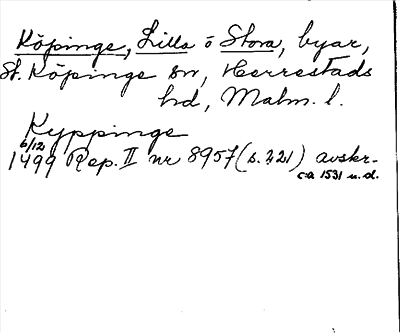 Köpinge, Lilla o Stora, byar,
St. Köpinge sn, Herrestads
hd, Malm. l.
Kyppinge
6/12
1499 Rep. II nr 8957 (s. 321) avskr.
ca 1531 u.d.